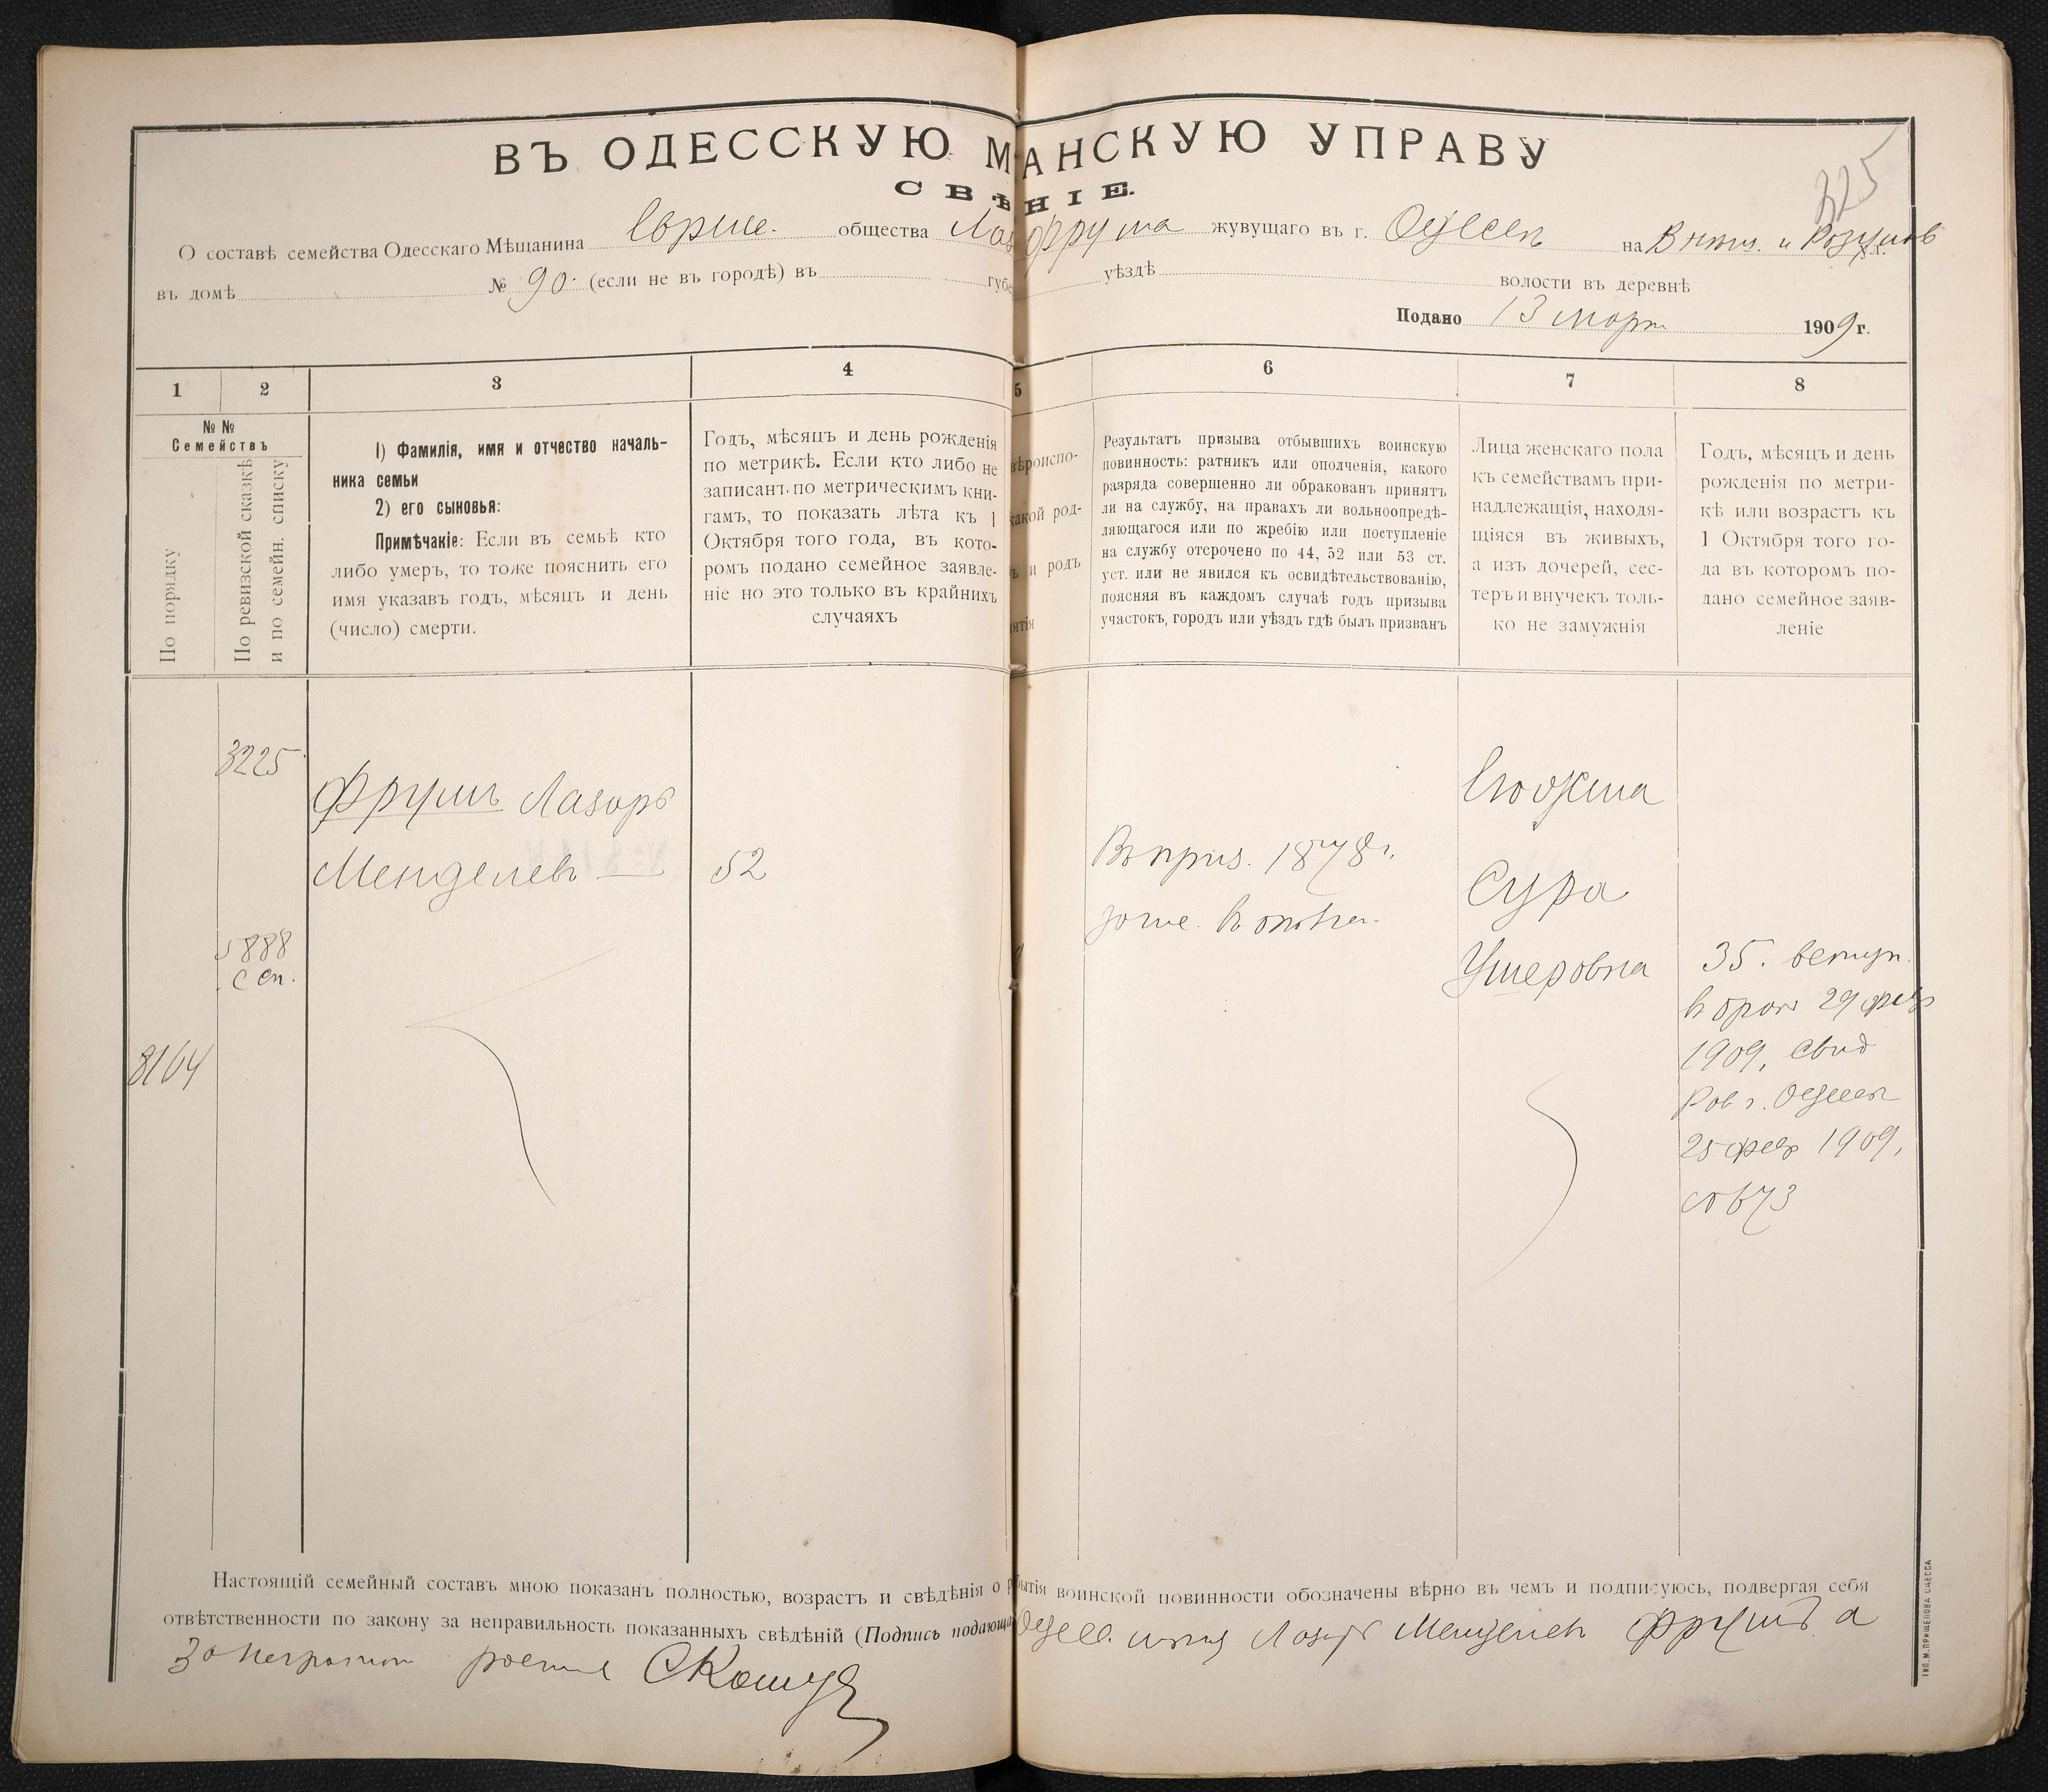 325
ВЪ ОДЕССКУЮ М АНСКУЮ УПРАВУ
СВѢ НІЕ.
О составѣ семейства Одесскаго Мѣщанина общества Лаз Фрума жувущаго въ г. Одессѣ на
въ домѣ № 90 (если не въ городѣ) въ губе уѣздѣ волости въ деревнѣ
Подано 13 март 1909 г.
1 2 3 4 5 6 7 8
№ №
Семействъ
По порядку
По ревизской сказкѣ
и по семейн. списку
1) Фамилія, имя и отчество началь-
ника семьи
2) его сыновья:
Примѣчакіе: Если въ семьѣ кто
либо умеръ, то тоже пояснить его
имя указавъ годъ, мѣсяцъ и день
(число) смерти.
Годъ, мѣсяцъ и день рожденія
по метрикѣ. Если кто либо не
записанъ по метрическимъ кни-
гамъ, то показать лѣта къ 1
Октября того года, въ кото-
ромъ подано семейное заявле-
ніе но это только въ крайнихъ
случаяхъ
вѣроиспо-
какой род-
и родъ
ятія
Результатъ призыва отбывшихъ воинскую
повинность: ратникъ или ополченія, какого
разряда совершенно ли обракованъ принятъ
ли на службу, на правахъ ли вольноопредѣ-
ляющагося или по жребію или поступленіе
на службу отсрочено по 44, 52 или 53 ст.
уст. или не явился къ освидѣтельствованію,
поясняя въ каждомъ случаѣ годъ призыва
участокъ, городъ или уѣздъ гдѣ былъ призванъ
Лица женскаго пола
къ семействамъ при-
надлежащія, находя-
щіяся въ живыхъ,
а изъ дочерей, сес-
теръ и внучекъ толь-
ко не замужнія
Годъ, мѣсяцъ и день
рожденія по метри-
кѣ или возрастъ къ
1 Октября того го-
да въ которомъ по-
дано семейное заяв-
леніе
3225
Фрумъ Лазорь
Менделевъ 52
Въ приз. 1878 г.
Его жена
Сура
Ушеровна
5888
с сп.
8164
35. вступ.
в брак 29 фев
1909, Свид
Рав г. Одессы
25 фев 1909,
Настоящій семейный составъ мною показанъ полностью, возрастъ и свѣдѣнія о бытія воинской повинности обозначены вѣрно въ чемъ и подписуюсь, подвергая себя
отвѣтственности по закону за неправильность показанныхъ свѣдѣній (Подпись подающа Одесс. мѣщ Лазорь Менделевъ Фрумъ а
за неграмотн
ТИП. М. ПРИЩЕПОВА ОДЕССА